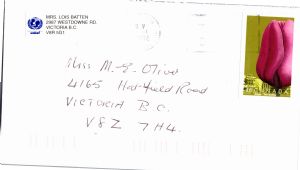 MRS. LOIS BATTEN
2987 WESTDOWNE RD.
VICTORIA B.C
V8R 5G1
unicef
Miss M-E. Olive
4165 Hatfield Road
VICTORIA B.C.
V8Z 7H4.
CANADA